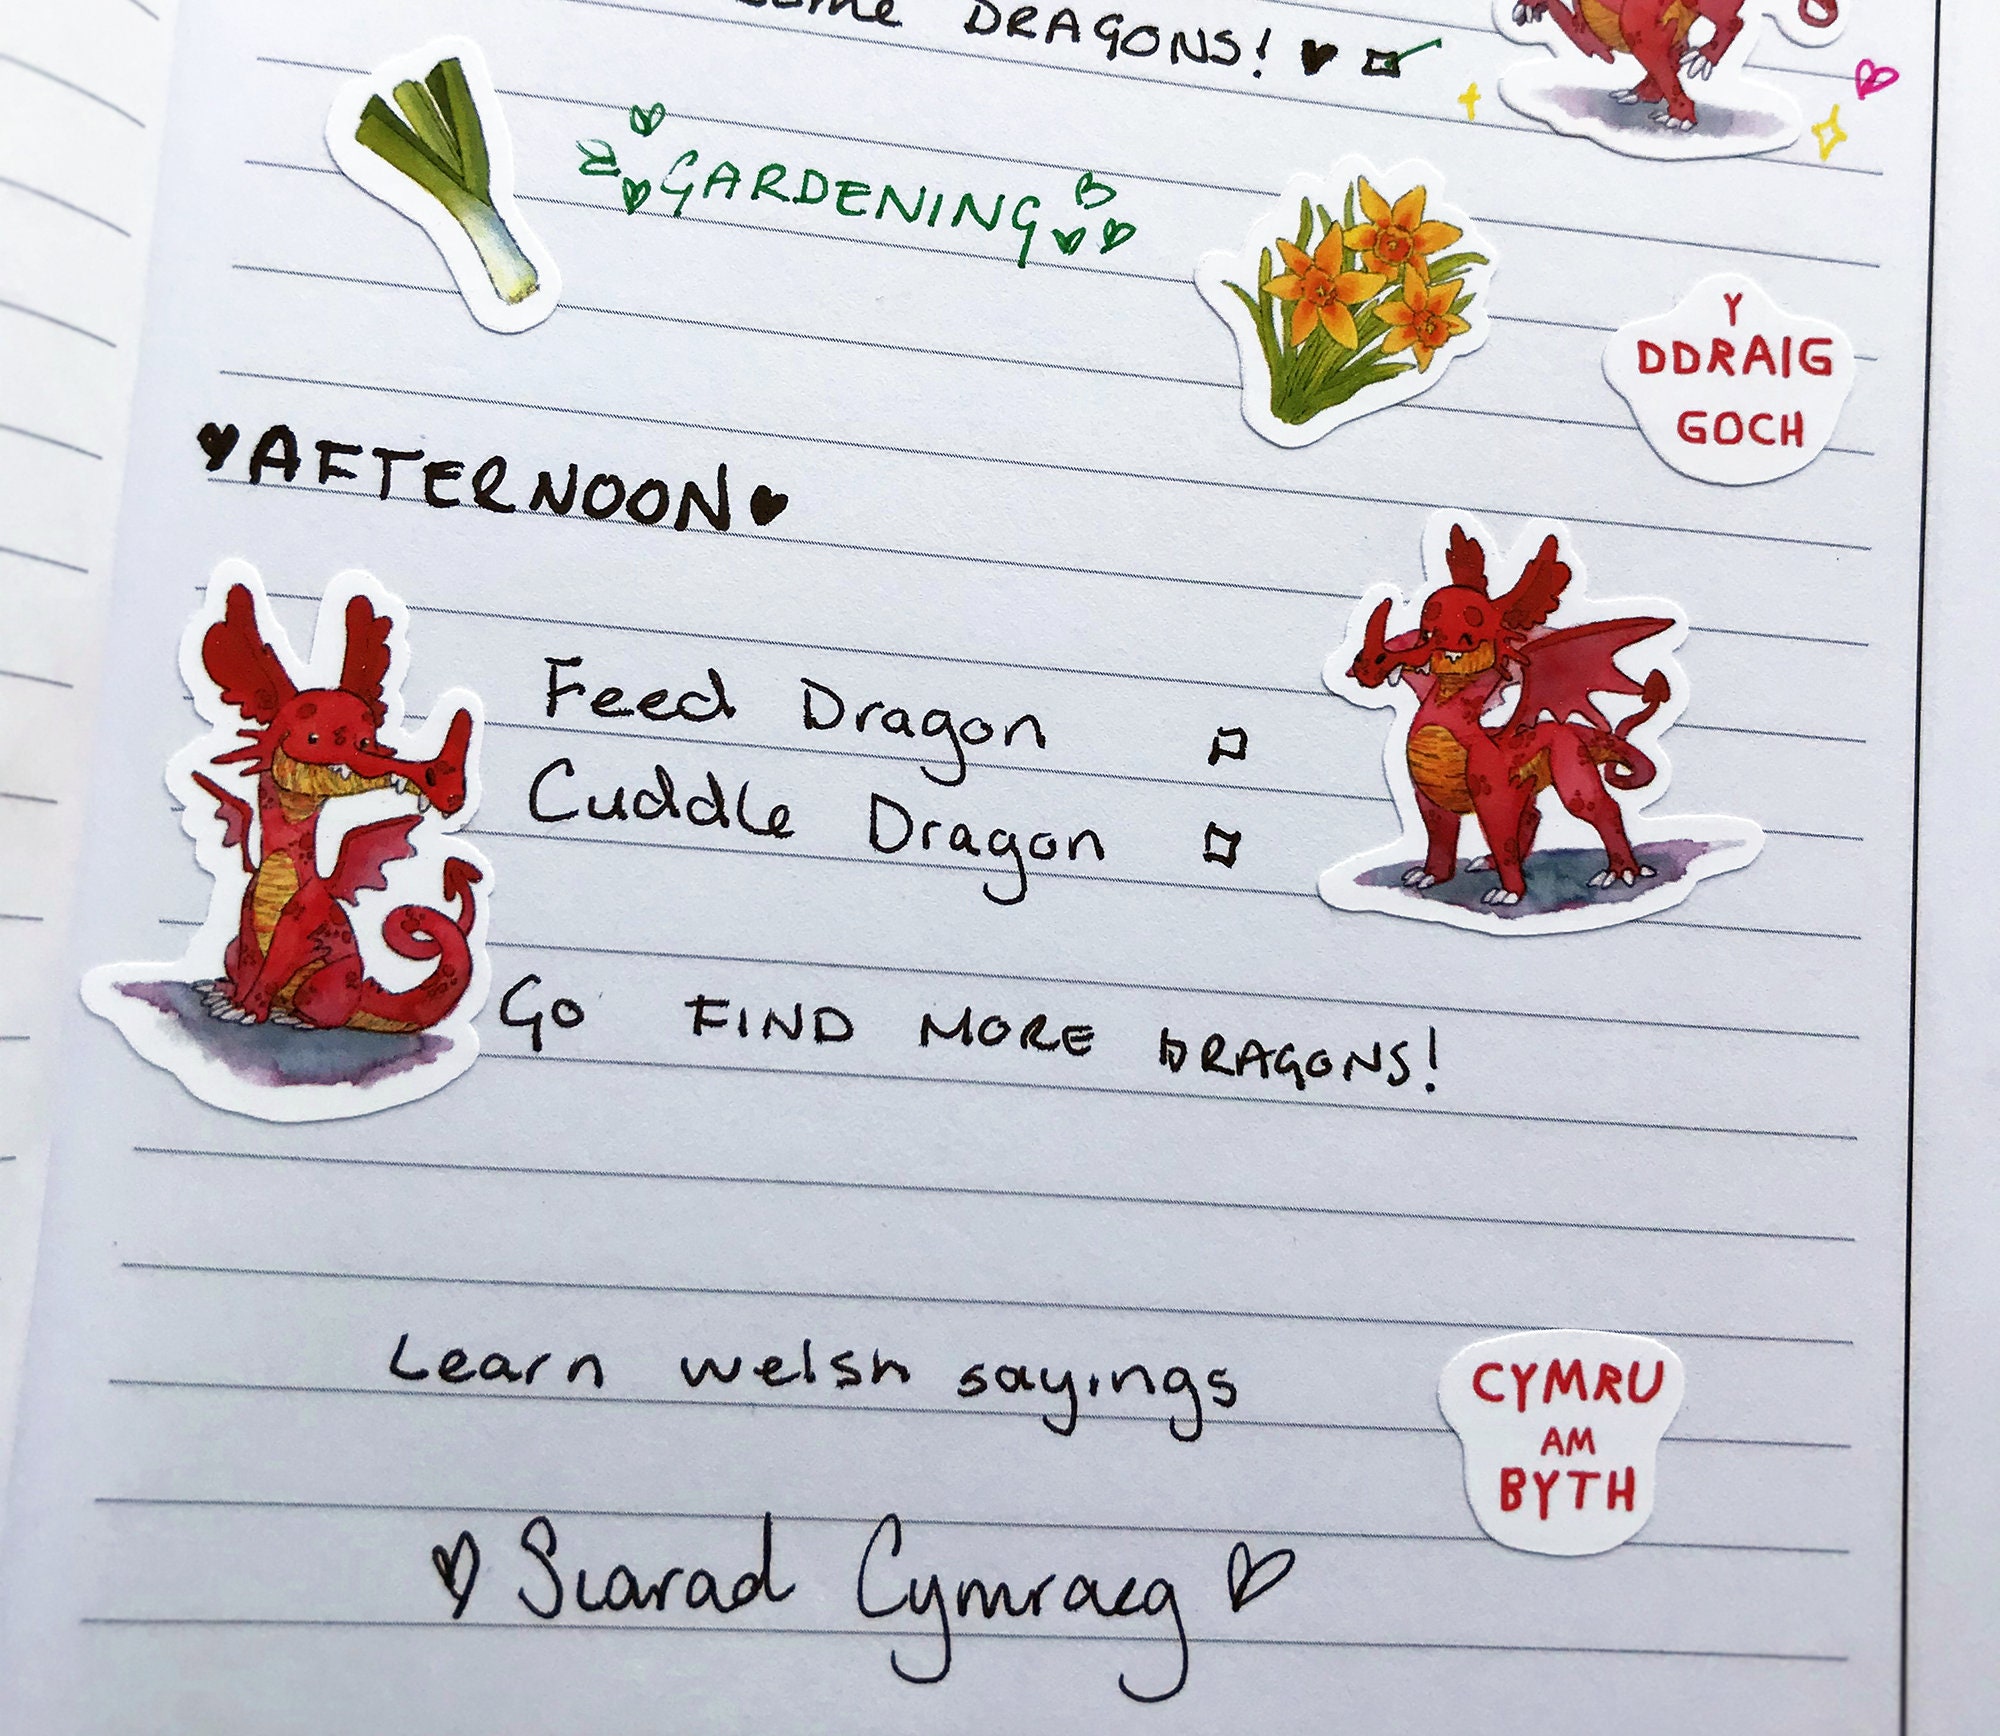 DRAGONS!
GARDENING
Y
DDRAIG
GOCH
AFTERNOON
Feed Dragon
Cuddle Dragon
GO FIND MORE DRAGONS!
Learn welsh sayings
CYMRU
AM
BYTH
Siarad Cymraeg